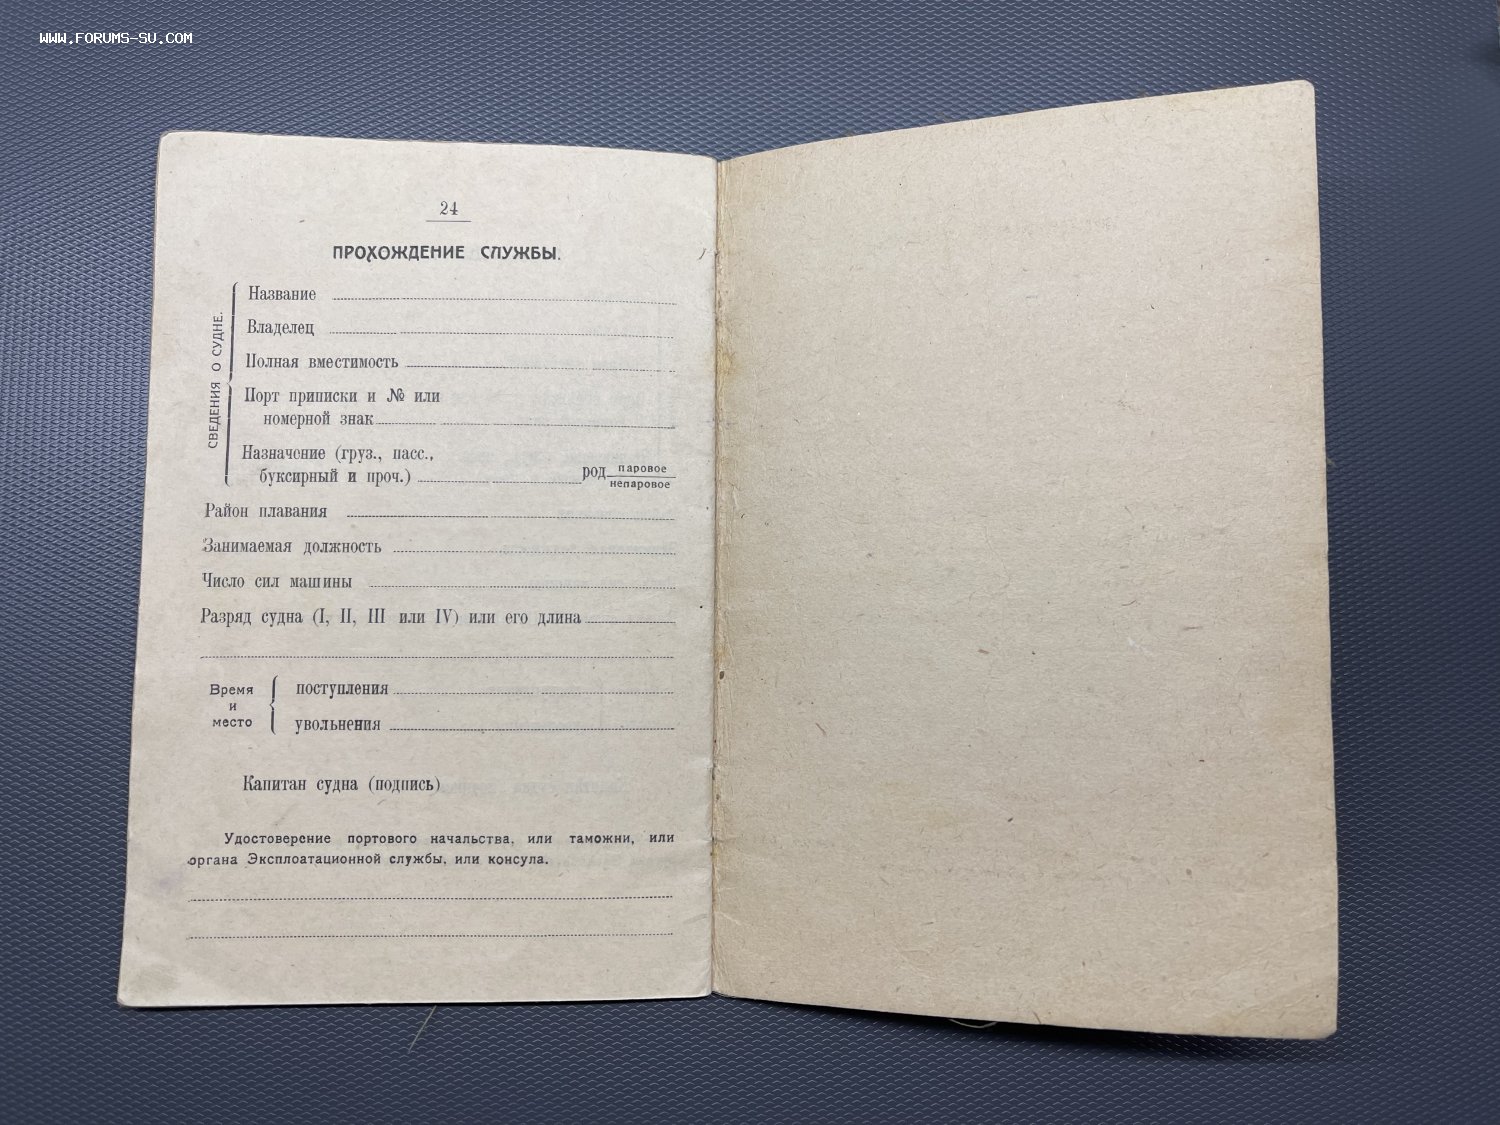 WWW.FORUMS-SU.COM
24
ПРОХОЖДЕНИЕ СЛУЖБЫ.
СВЕДЕНИЯ О СУДНЕ.
Название
Владелец
Полная вместимость
Порт приписки и № или
номерной знак
Назначение (груз., пасс.,
буксирный и проч.) род паровое
непаровое
Район плавания
Занимаемая должность
Число сил машины
Разряд судна (I, II, III или IV) или его длина
Время
и
место
поступления
увольнения
Капитан судна (подпись)
Удостоверение портового начальства, или таможни, или
органа Эксплоатационной службы, или консула.